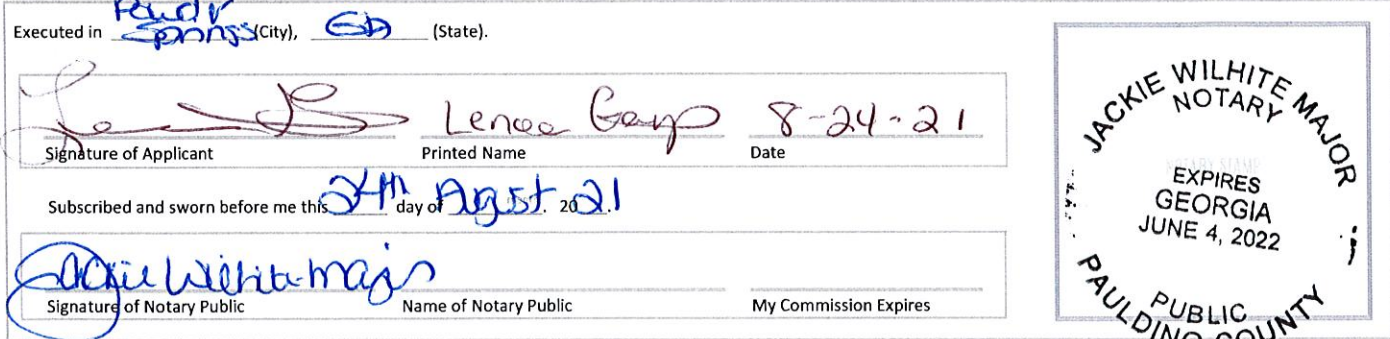 Springs
Executed in (City), GA (State).
Lenee Gayo 8-24-21
Signature of Applicant Printed Name Date
Subscribed and sworn before me this 24th day of August. 2021.
Jackie Wilhite-Major
Signature of Notary Public Name of Notary Public My Commission Expires
JACKIE WILHITE MAJOR
NOTARY
NOTARY STAMP
EXPIRES
GEORGIA
JUNE 4, 2022
PUBLIC
PAULDING COUNTY